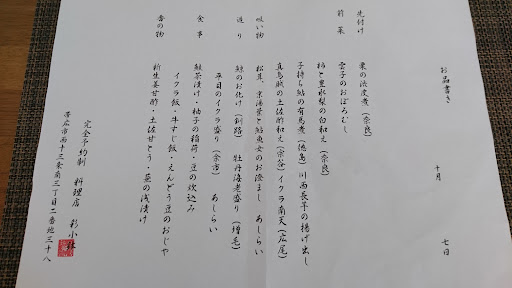 お品書き
十月
七日
先付け
栗の渋皮煮（奈良）
雲子のおぼろむし
前菜
柿と豊水梨の白和え（奈良）
子持ち鮎の有馬煮（徳島）川西長芋の揚げ出し
真烏賊の土佐酢和え（宗谷）イクラ南天（広尾）
吸い物
松茸、京湯葉と鮎魚女のお澄まし　あしらい
造り
鯨のお化け（釧路）　牡丹海老盛り（増毛）
平目のイクラ盛り（余市）　あしらい
食事
鮭茶漬け・柚子の稲荷・豆の炊込み
イクラ飯・牛すじ飯・えんどう豆のおじや
香の物
新生姜甘酢・土佐甘とう・蕪の浅漬け
完全予約制　料理店　彩小林
帯広市西十三条南三丁目二番地三十八